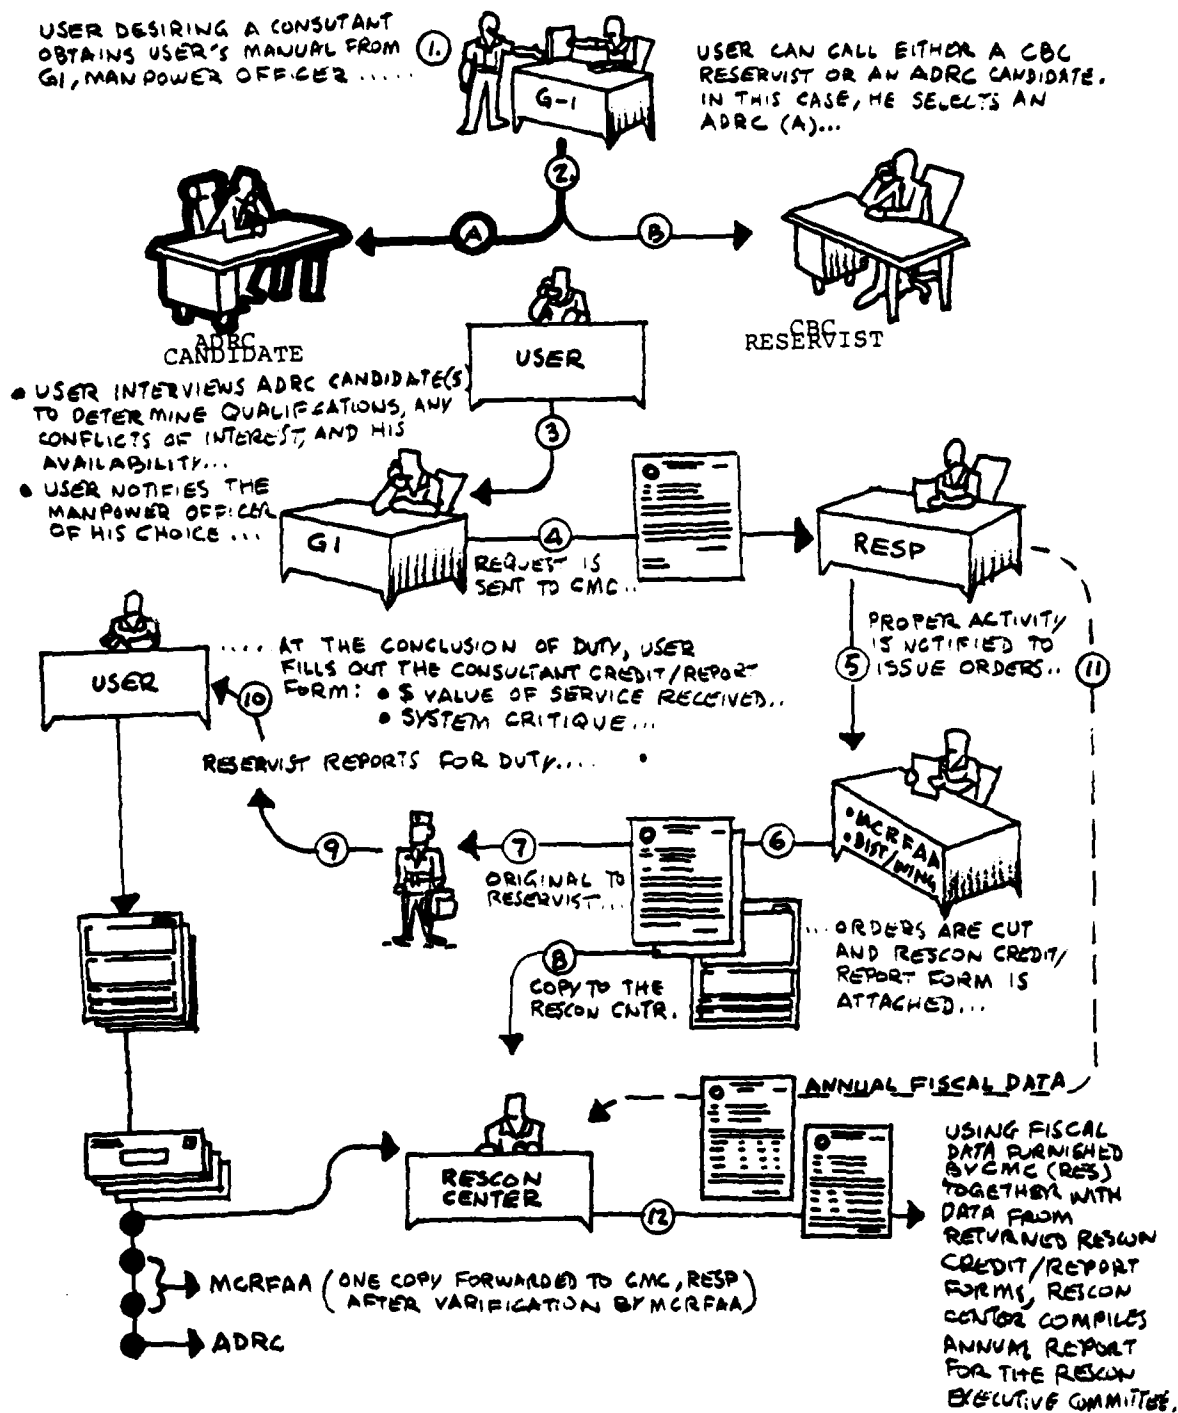 USER DESIRING A CONSUTANT
OBTAINS USER'S MANUAL FROM
G1, MANPOWER OFFICER .....
1.
G-1
USER CAN CALL EITHER A CBC
RESERVIST OR AN ADRC CANDIDATE.
IN THIS CASE, HE SELECTS AN
ADRC (A)...
2.
A
B
ADRC
CANDIDATE
CBC
RESERVIST
USER
• USER INTERVIEWS ADRC CANDIDATE(S)
TO DETERMINE QUALIFICATIONS, ANY
CONFLICTS OF INTEREST, AND HIS
AVAILABILITY...
• USER NOTIFIES THE
MANPOWER OFFICER
OF HIS CHOICE ...
3
G1
4
REQUEST IS
SENT TO CMC..
RESP
PROPER ACTIVITY
IS NOTIFIED TO
ISSUE ORDERS..
5
11
USER
..... AT THE CONCLUSION OF DUTY, USER
FILLS OUT THE CONSULTANT CREDIT/REPORT
FORM: • $ VALUE OF SERVICE RECEIVED..
• SYSTEM CRITIQUE...
10
RESERVIST REPORTS FOR DUTY....
• MCRFAA
• DIST/WING
6
7
ORIGINAL TO
RESERVIST...
9
8
COPY TO THE
RESCON CNTR.
... ORDERS ARE CUT
AND RESCON CREDIT/
REPORT FORM IS
ATTACHED...
ANNUAL FISCAL DATA
RESCON
CENTER
12
USING FISCAL
DATA FURNISHED
BY CMC (RES)
TOGETHER WITH
DATA FROM
RETURNED RESCON
CREDIT/REPORT
FORMS, RESCON
CENTER COMPILES
ANNUAL REPORT
FOR THE RESCON
EXECUTIVE COMMITTEE.
MCRFAA (ONE COPY FORWARDED TO CMC, RESP
AFTER VARIFICATION BY MCRFAA)
ADRC